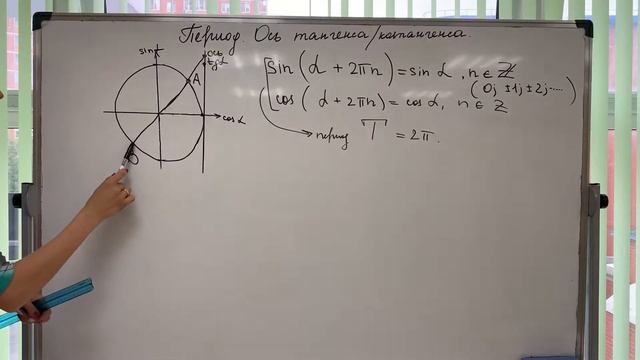 Период. Ось тангенса/котангенса.
sin α
ось
tg α
A
cos α
B
sin(α + 2πn) = sin α, n ∈ ℤ
(0; ±1; ±2; ....)
cos(α + 2πn) = cos α, n ∈ ℤ
период T = 2π.